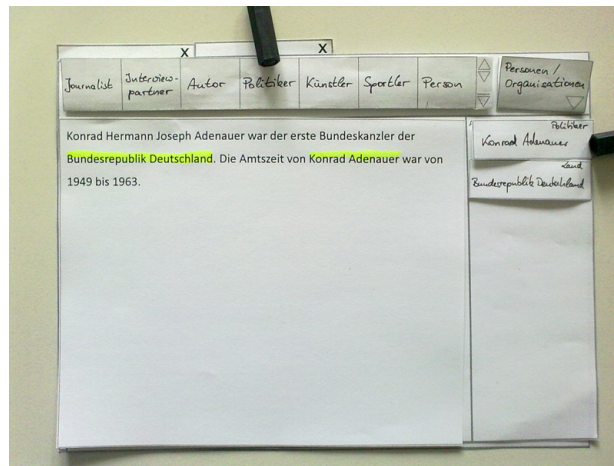 x x
Journalist Interview-
partner Autor Politiker Künstler Sportler Person Personen /
Organisationen
Konrad Hermann Joseph Adenauer war der erste Bundeskanzler der
Bundesrepublik Deutschland. Die Amtszeit von Konrad Adenauer war von
1949 bis 1963.
Politiker
Konrad Adenauer
Land
Bundesrepublik Deutschland